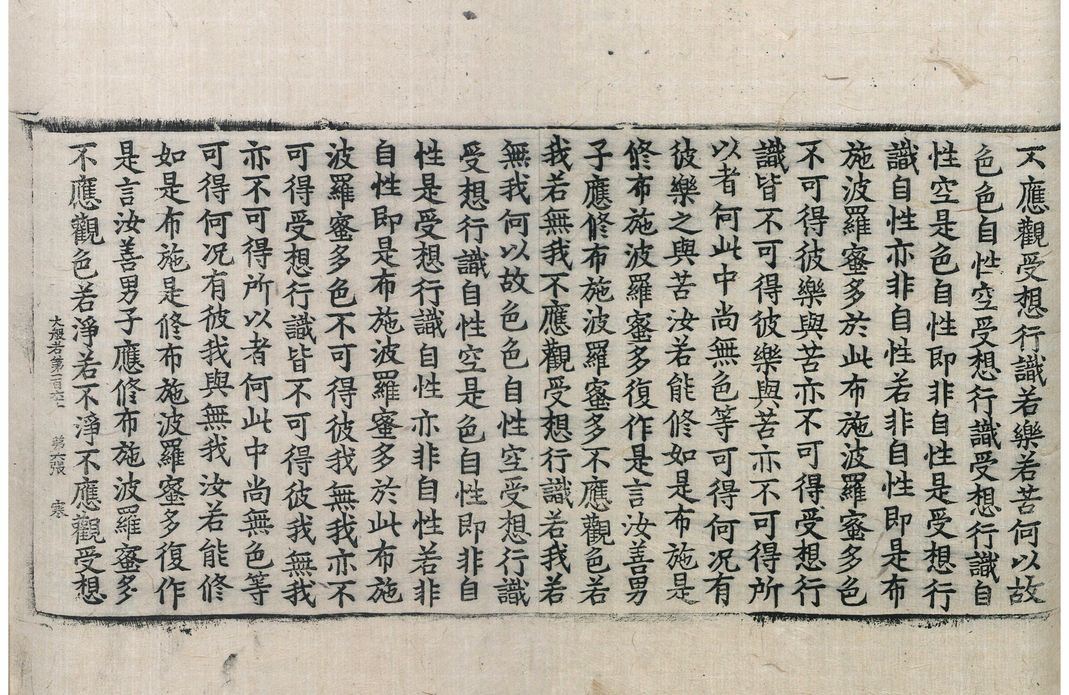 不應觀受想行識若樂若苦何以故
色色自性空受想行識受想行識自
性空是色自性即非自性是受想行
識自性亦非自性若非自性即是布
施波羅蜜多於此布施波羅蜜多色
不可得彼樂與苦亦不可得受想行
識皆不可得彼樂與苦亦不可得所
以者何此中尚無色等可得何况有
彼樂之與苦汝若能修如是布施是
修布施波羅蜜多復作是言汝善男
子應修布施波羅蜜多不應觀色若
我若無我不應觀受想行識若我若
無我何以故色色自性空受想行識
受想行識自性空是色自性即非自
性是受想行識自性亦非自性若非
自性即是布施波羅蜜多於此布施
波羅蜜多色不可得彼我無我亦不
可得受想行識皆不可得彼我無我
亦不可得所以者何此中尚無色等
可得何况有彼我與無我汝若能修
如是布施是修布施波羅蜜多復作
是言汝善男子應修布施波羅蜜多
不應觀色若淨若不淨不應觀受想
大般若第一百六 第六張 寒